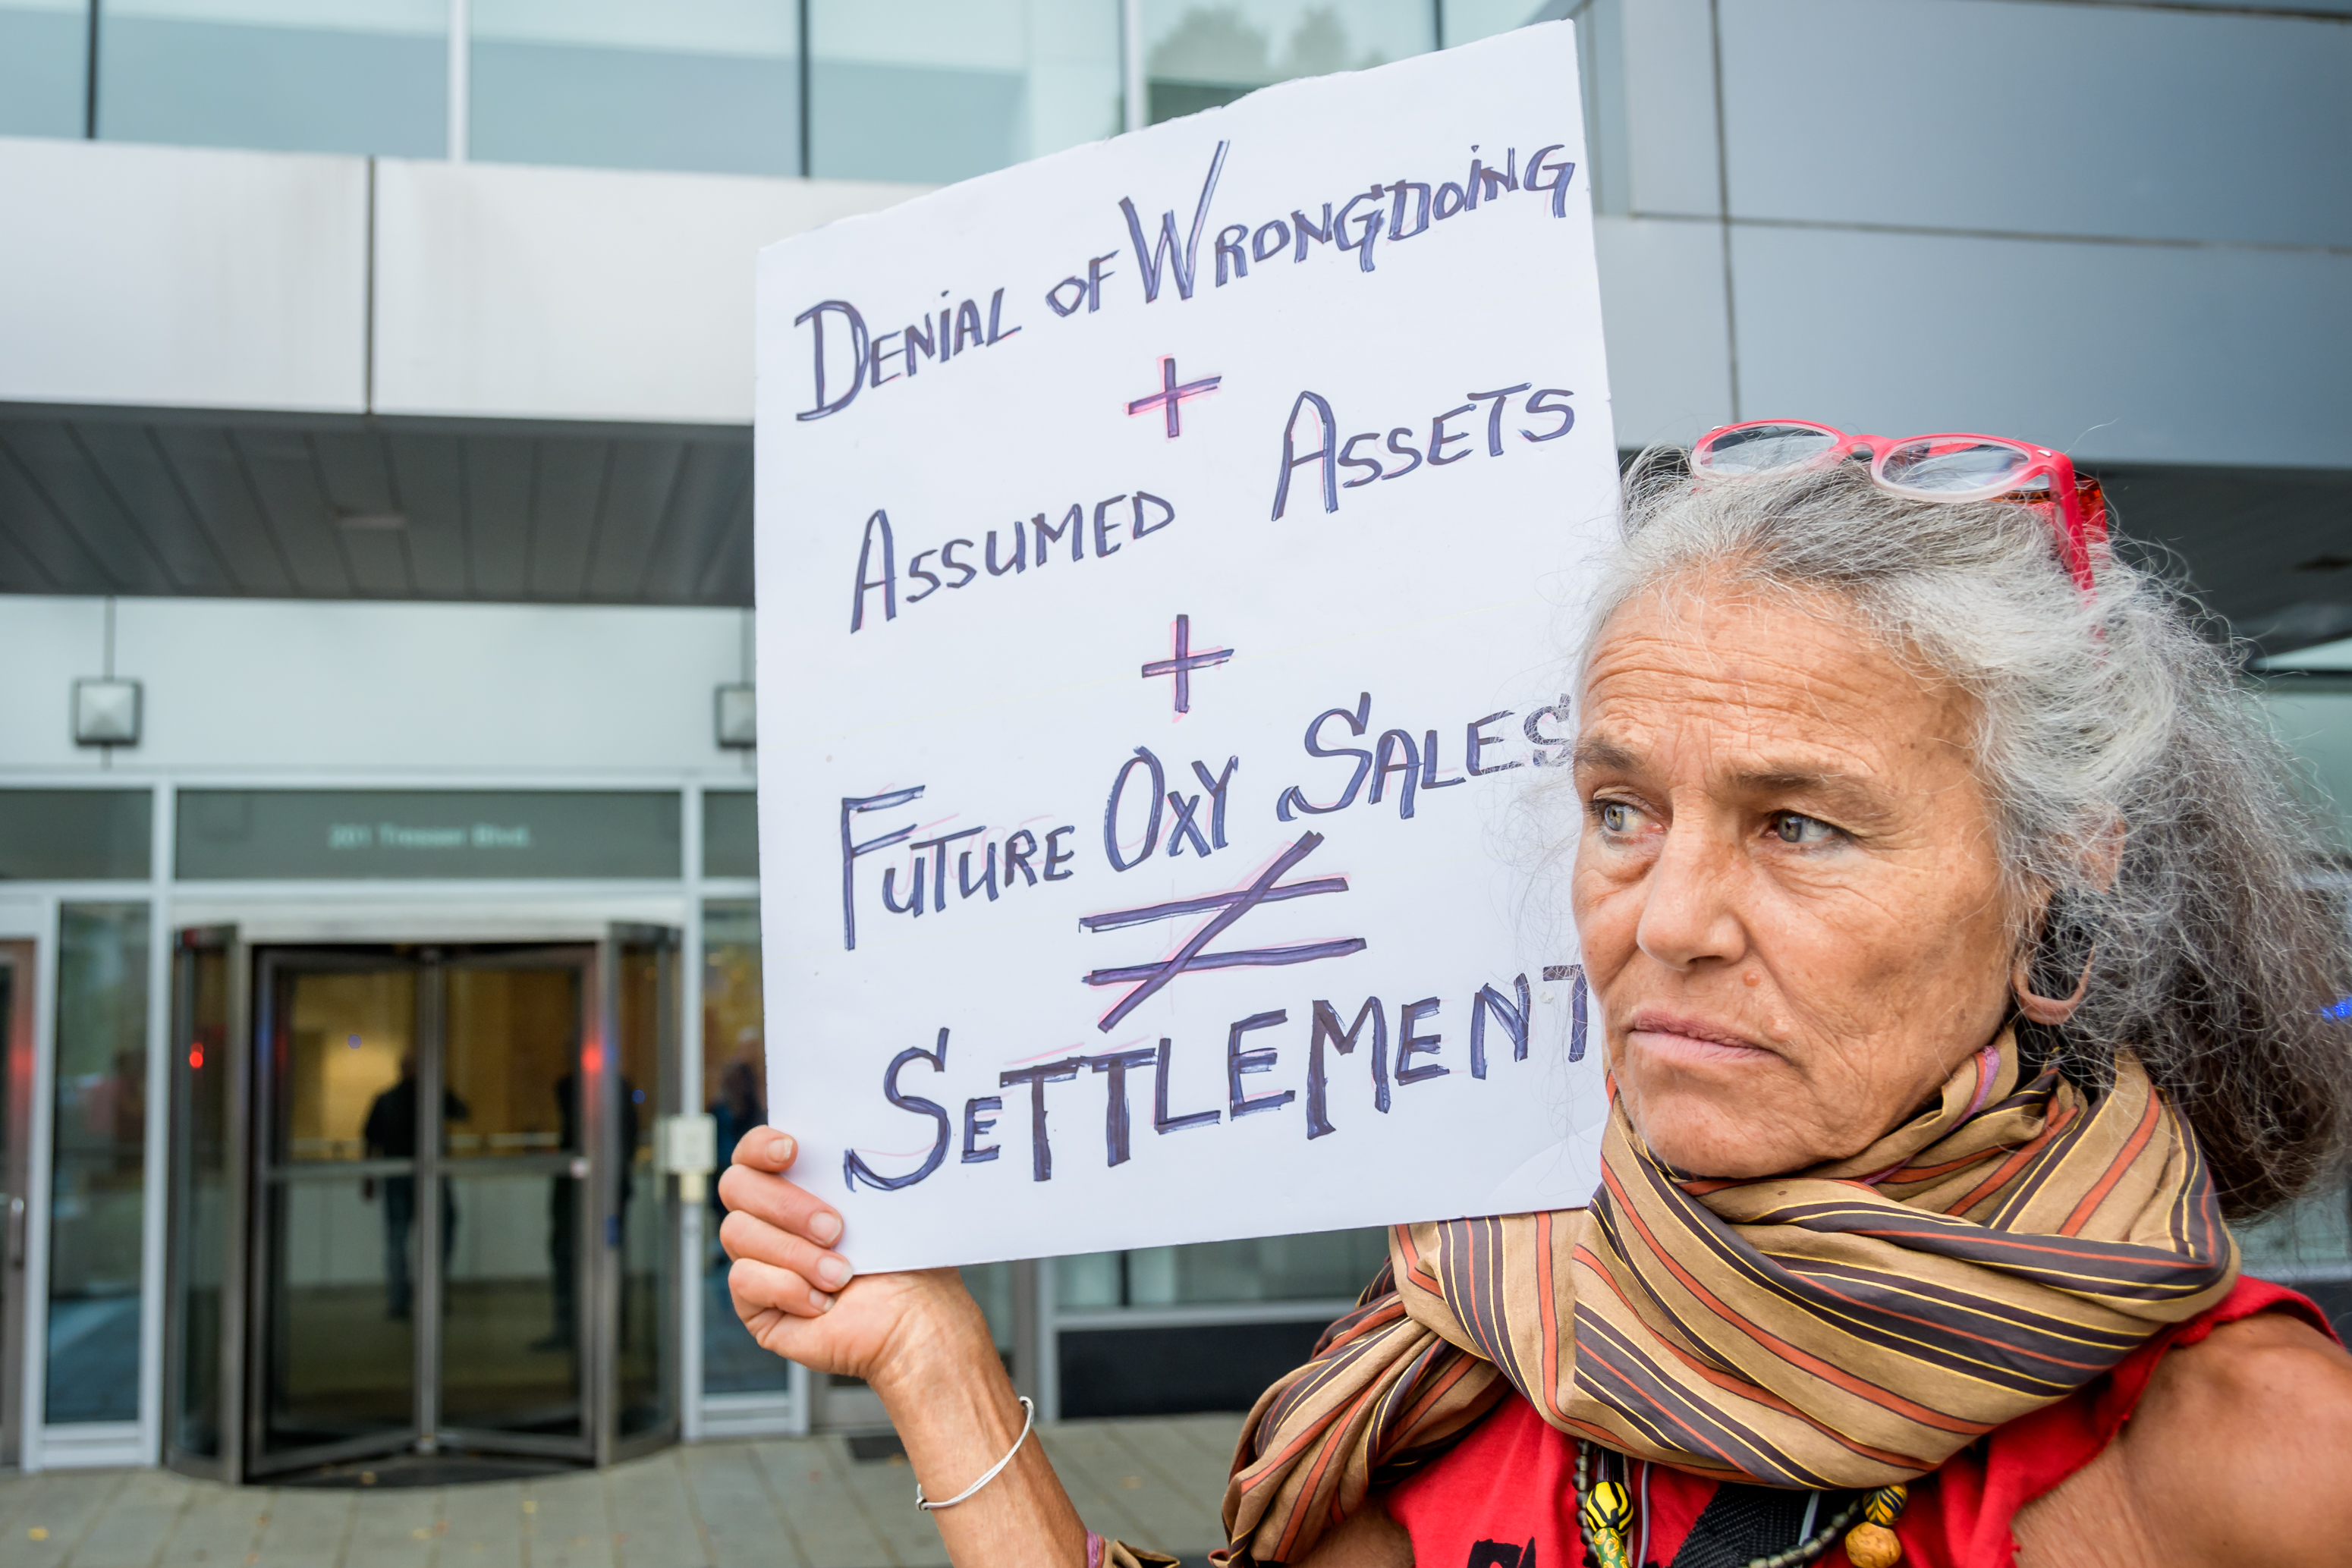 201 Tresser Blvd.
DENiAL OF WRONGDOiNG
+
ASSUMED ASSETS
+
FUTURE OXY SALES
≠
SETTLEMENT